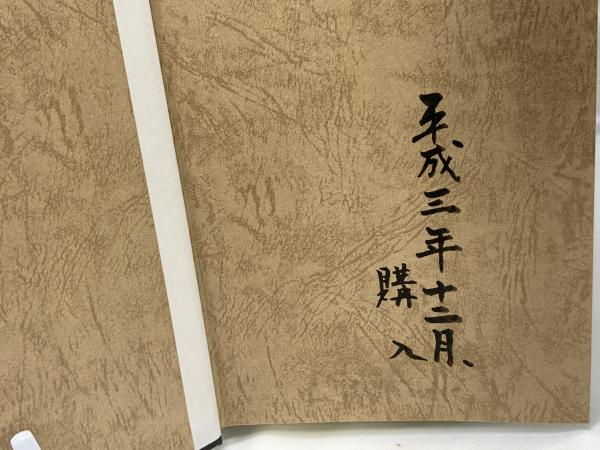 平成三年十二月、
購入